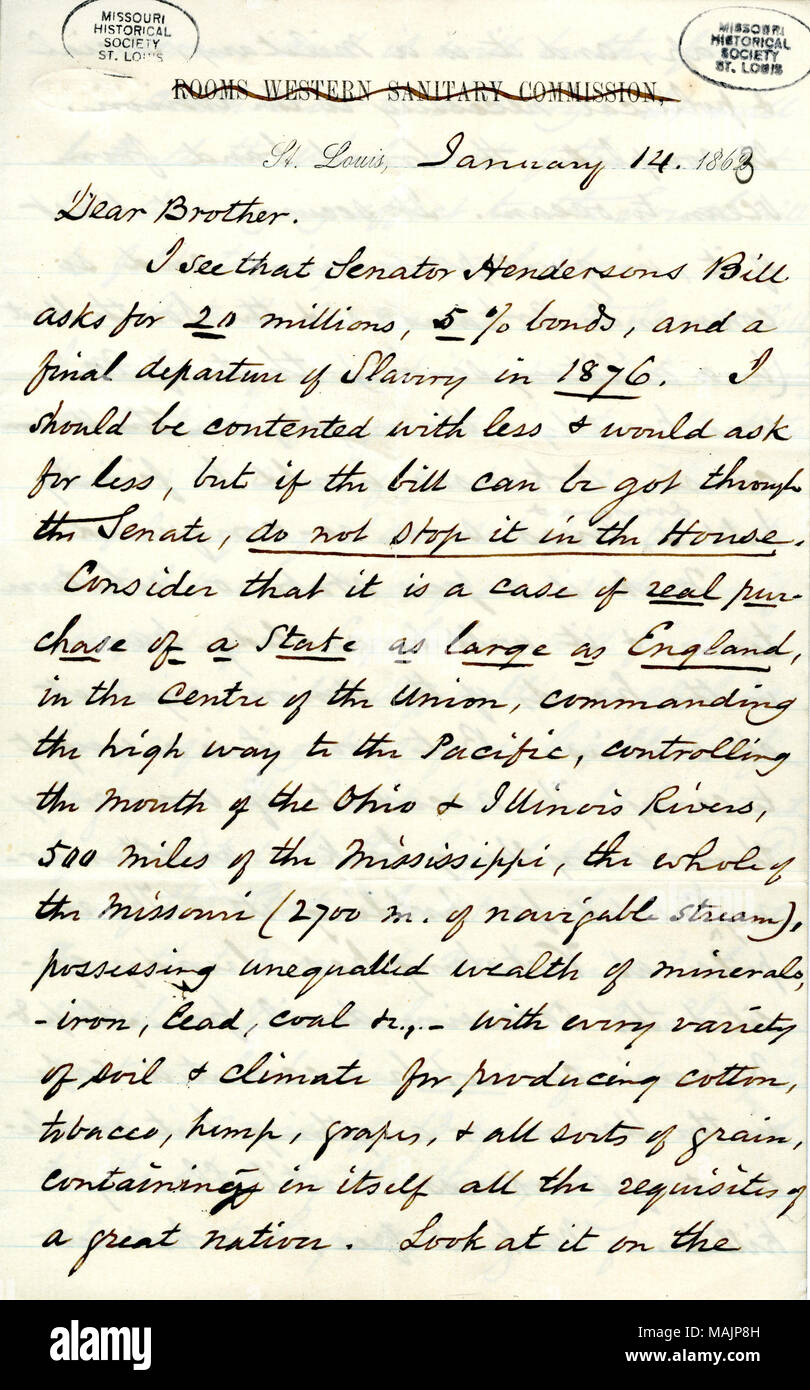 MISSOURI
HISTORICAL
SOCIETY
ST. LOUIS
MISSOURI
HISTORICAL
SOCIETY
ST. LOUIS
ROOMS WESTERN SANITARY COMMISSION,
St. Louis, January 14. 1863
Dear Brother.
I see that Senator Hendersons Bill
asks for 20 millions, 5 % bonds, and a
final departure of Slavery in 1876. I
should be contented with less & would ask
for less, but if the bill can be got through
the Senate, do not stop it in the House.
Consider that it is a case of real pur-
chase of a State as large as England,
in the Centre of the Union, commanding
the high way to the Pacific, controlling
the mouth of the Ohio & Illinois Rivers,
500 miles of the Mississippi, the whole of
the Missouri (2700 m. of navigable stream),
possessing unequalled wealth of minerals,
- iron, lead, coal &c., - with every variety
of soil & climate for producing cotton,
tobacco, hemp, grapes, & all sorts of grain,
containing in itself all the requisites of
a great nation. Look at it on the
alamy
Image ID: MAJP8H
www.alamy.com